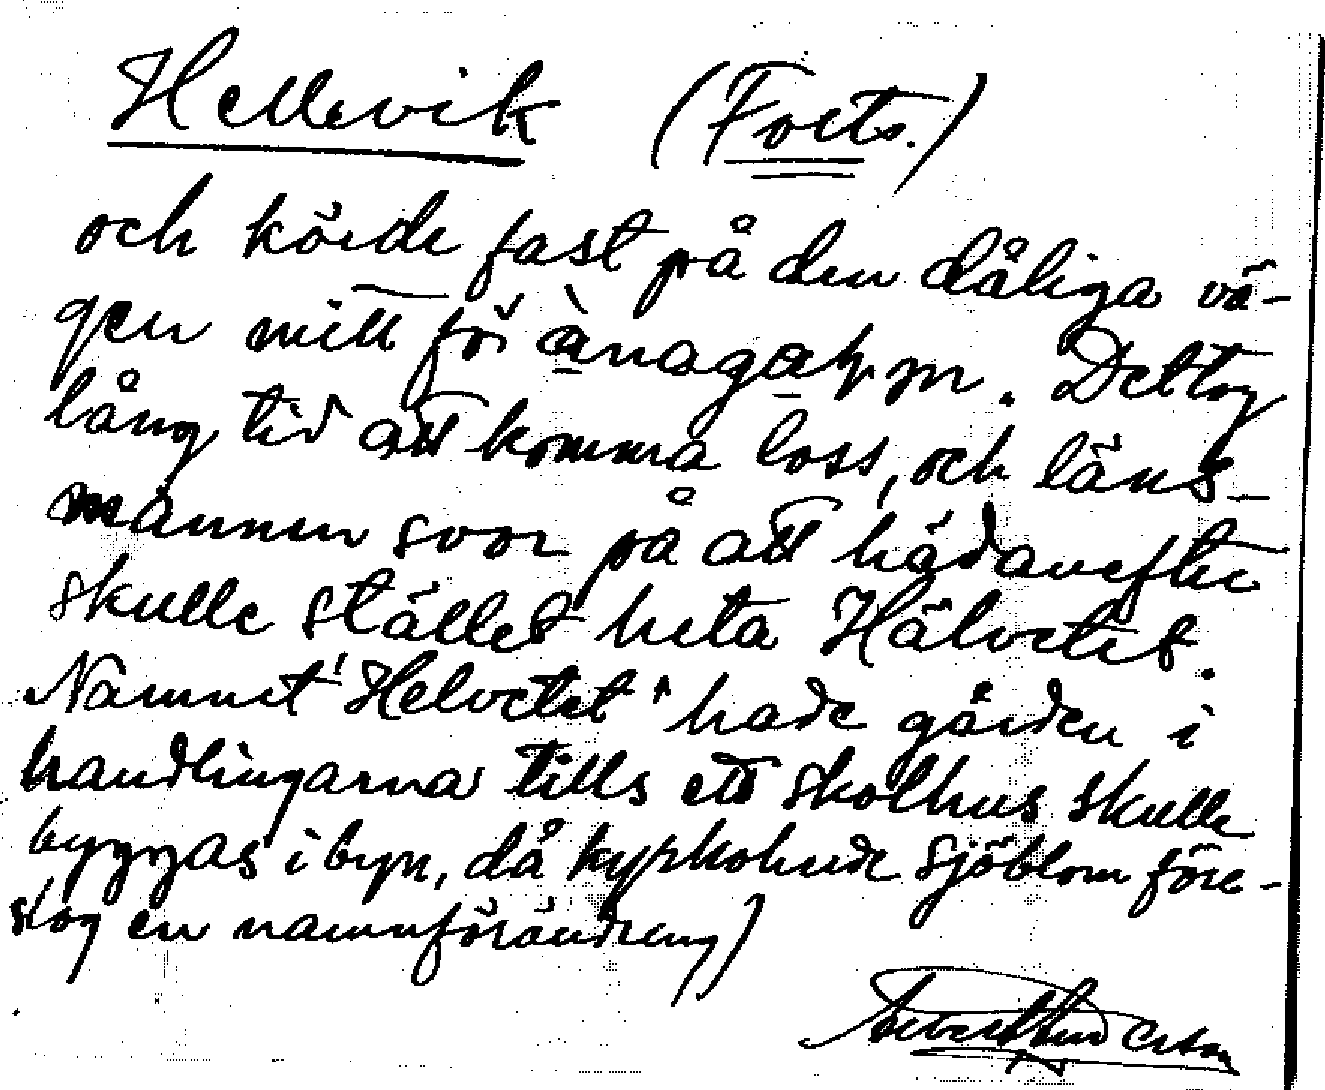 Hellevik (Forts.)
och körde fast på den dåliga vä-
gen mitt för . Det tog
lång tid att komma loss, och läns-
mannen svor på att hädanefter
skulle stället heta Hälvetet.
Namnet "Helvetet" hade gården i
handlingarna tills ett skolhus skulle
byggas i byn, då kyrkoherde Sjöblom före-
slog en namnförändring)